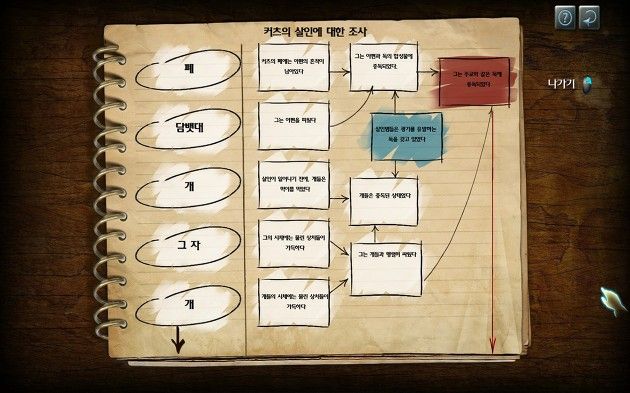 커츠의 살인에 대한 조사
폐
커츠의 폐에는 아편의 흔적이
남아있다
그는 아편과 독의 합성물에
중독되었다.
그는 주교와 같은 독에
중독되었다.
나가기
담뱃대
그는 아편을 피웠다
살인범들은 광기를 유발하는
독을 갖고 있었다
개
살인이 일어나기 전에, 개들은
먹이를 먹었다
개들은 중독된 상태였다
그 자
그의 시체에는 물린 상처들이
가득하다
그는 개들과 맹렬히 싸웠다
개
개들의 시체에는 물린 상처들이
가득하다